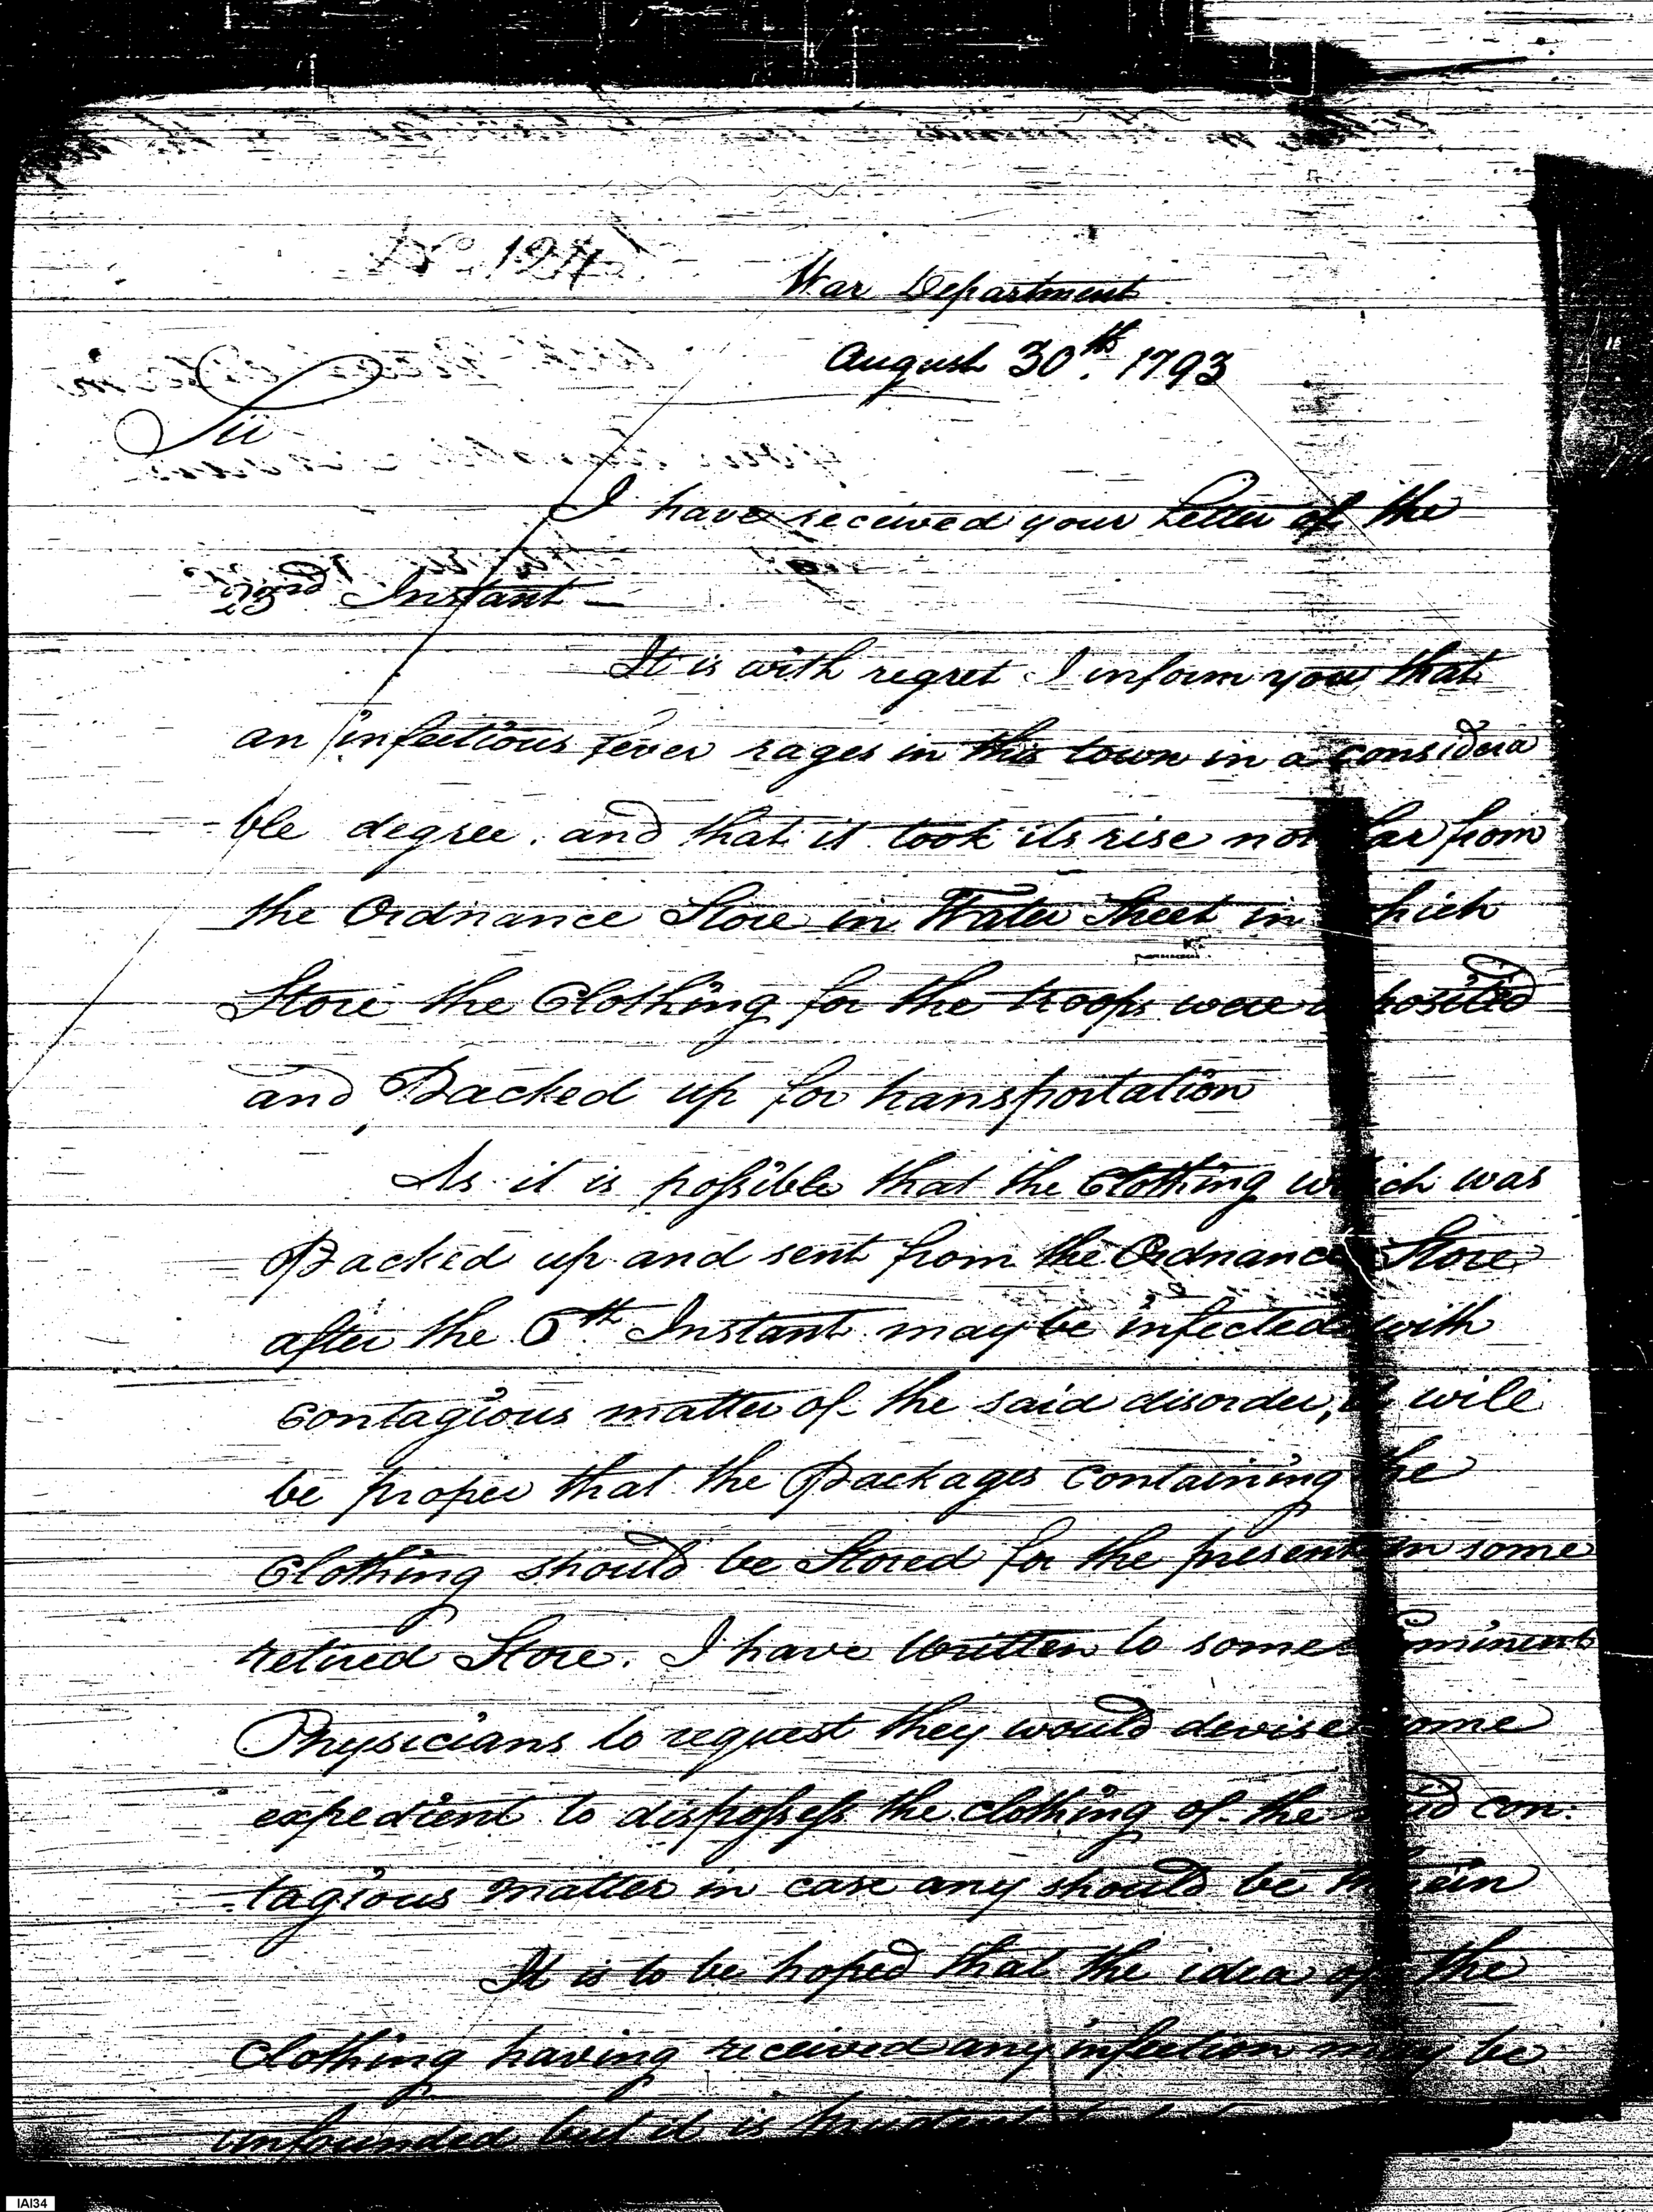 No. 124
War Department
August 30th. 1793
Sir
I have received your Letter of the
23rd Instant —
It is with regret I inform you, that
an infectious fever rages in this town in a considera
-ble degree. and that it took its rise not far from
the Ordnance Store in Water Street in which
Store the Clothing for the troops were deposited
and Packed up for transportation
As it is possible that the Clothing which was
Packed up and sent from the Ordnance Store
after the 6th Instant may be infected with
Contagious matter of the said disorder, it will
be proper that the Packages Containing the
Clothing should be Stored for the present in some
retired Store. I have Written to some eminent
Physicians to request they would devise some
expedient to dispossess the clothing of the said con:
-tagious matter in case any should be therein
It is to be hoped that the idea of the
Clothing having received any infection may be
unfounded but it is
IAI34